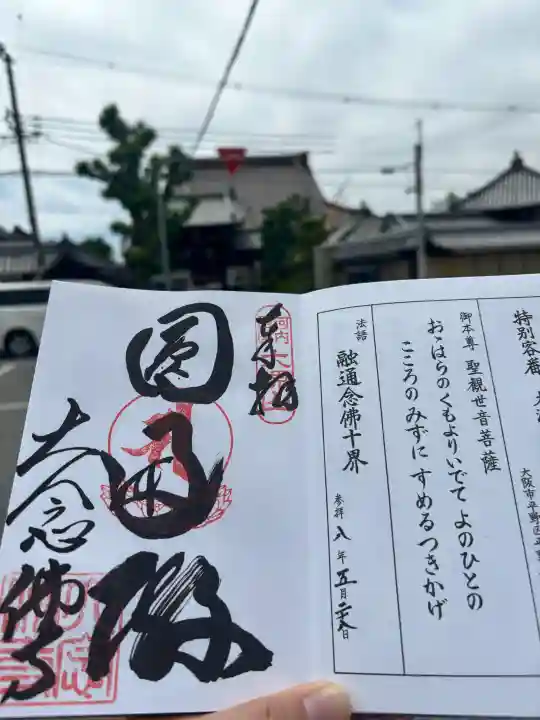 特別客番
大阪市平野区平野
御本尊 聖観世音菩薩
おゝはらのくもよりいでて よのひとの
こころのみずに すめるつきかげ
法話 融通念佛十界
参拝 八年五月二十八日
奉拝
圓通殿
大念佛寺